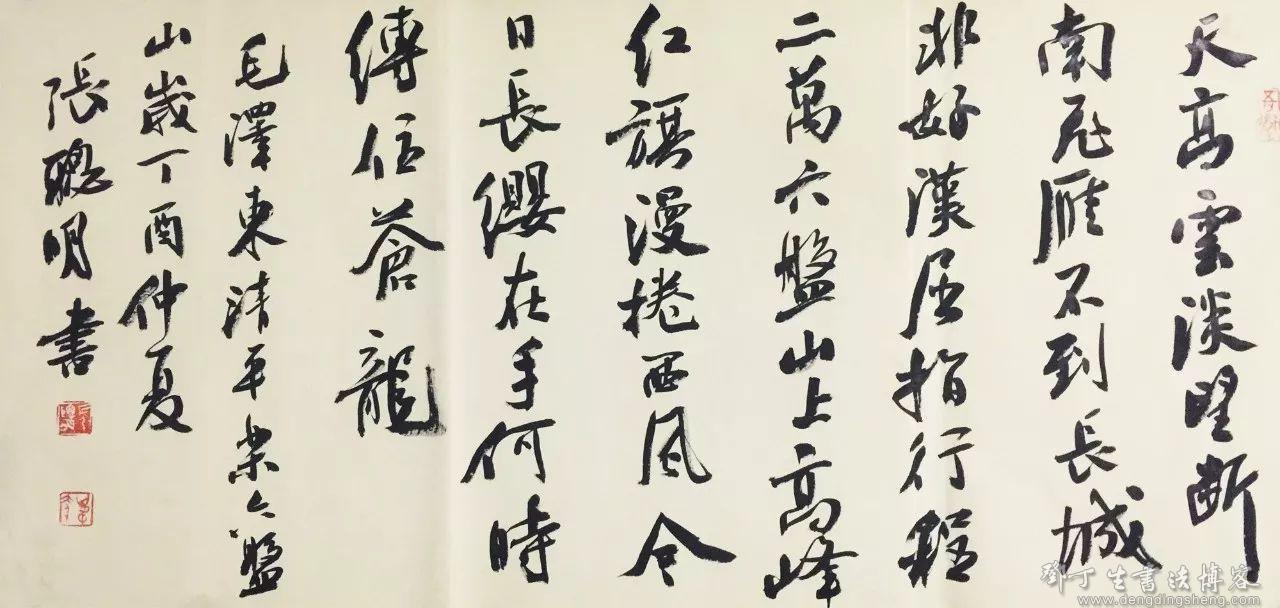 天高雲淡望斷
南飛雁不到長城
非好漢屈指行程
二萬六盤山上高峰
紅旗漫捲西風今
日長纓在手何時
縛住蒼龍
毛澤東清平樂六盤
山歲丁酉仲夏
張聰明書
鄧丁生書法博客
www.dengdingsheng.com